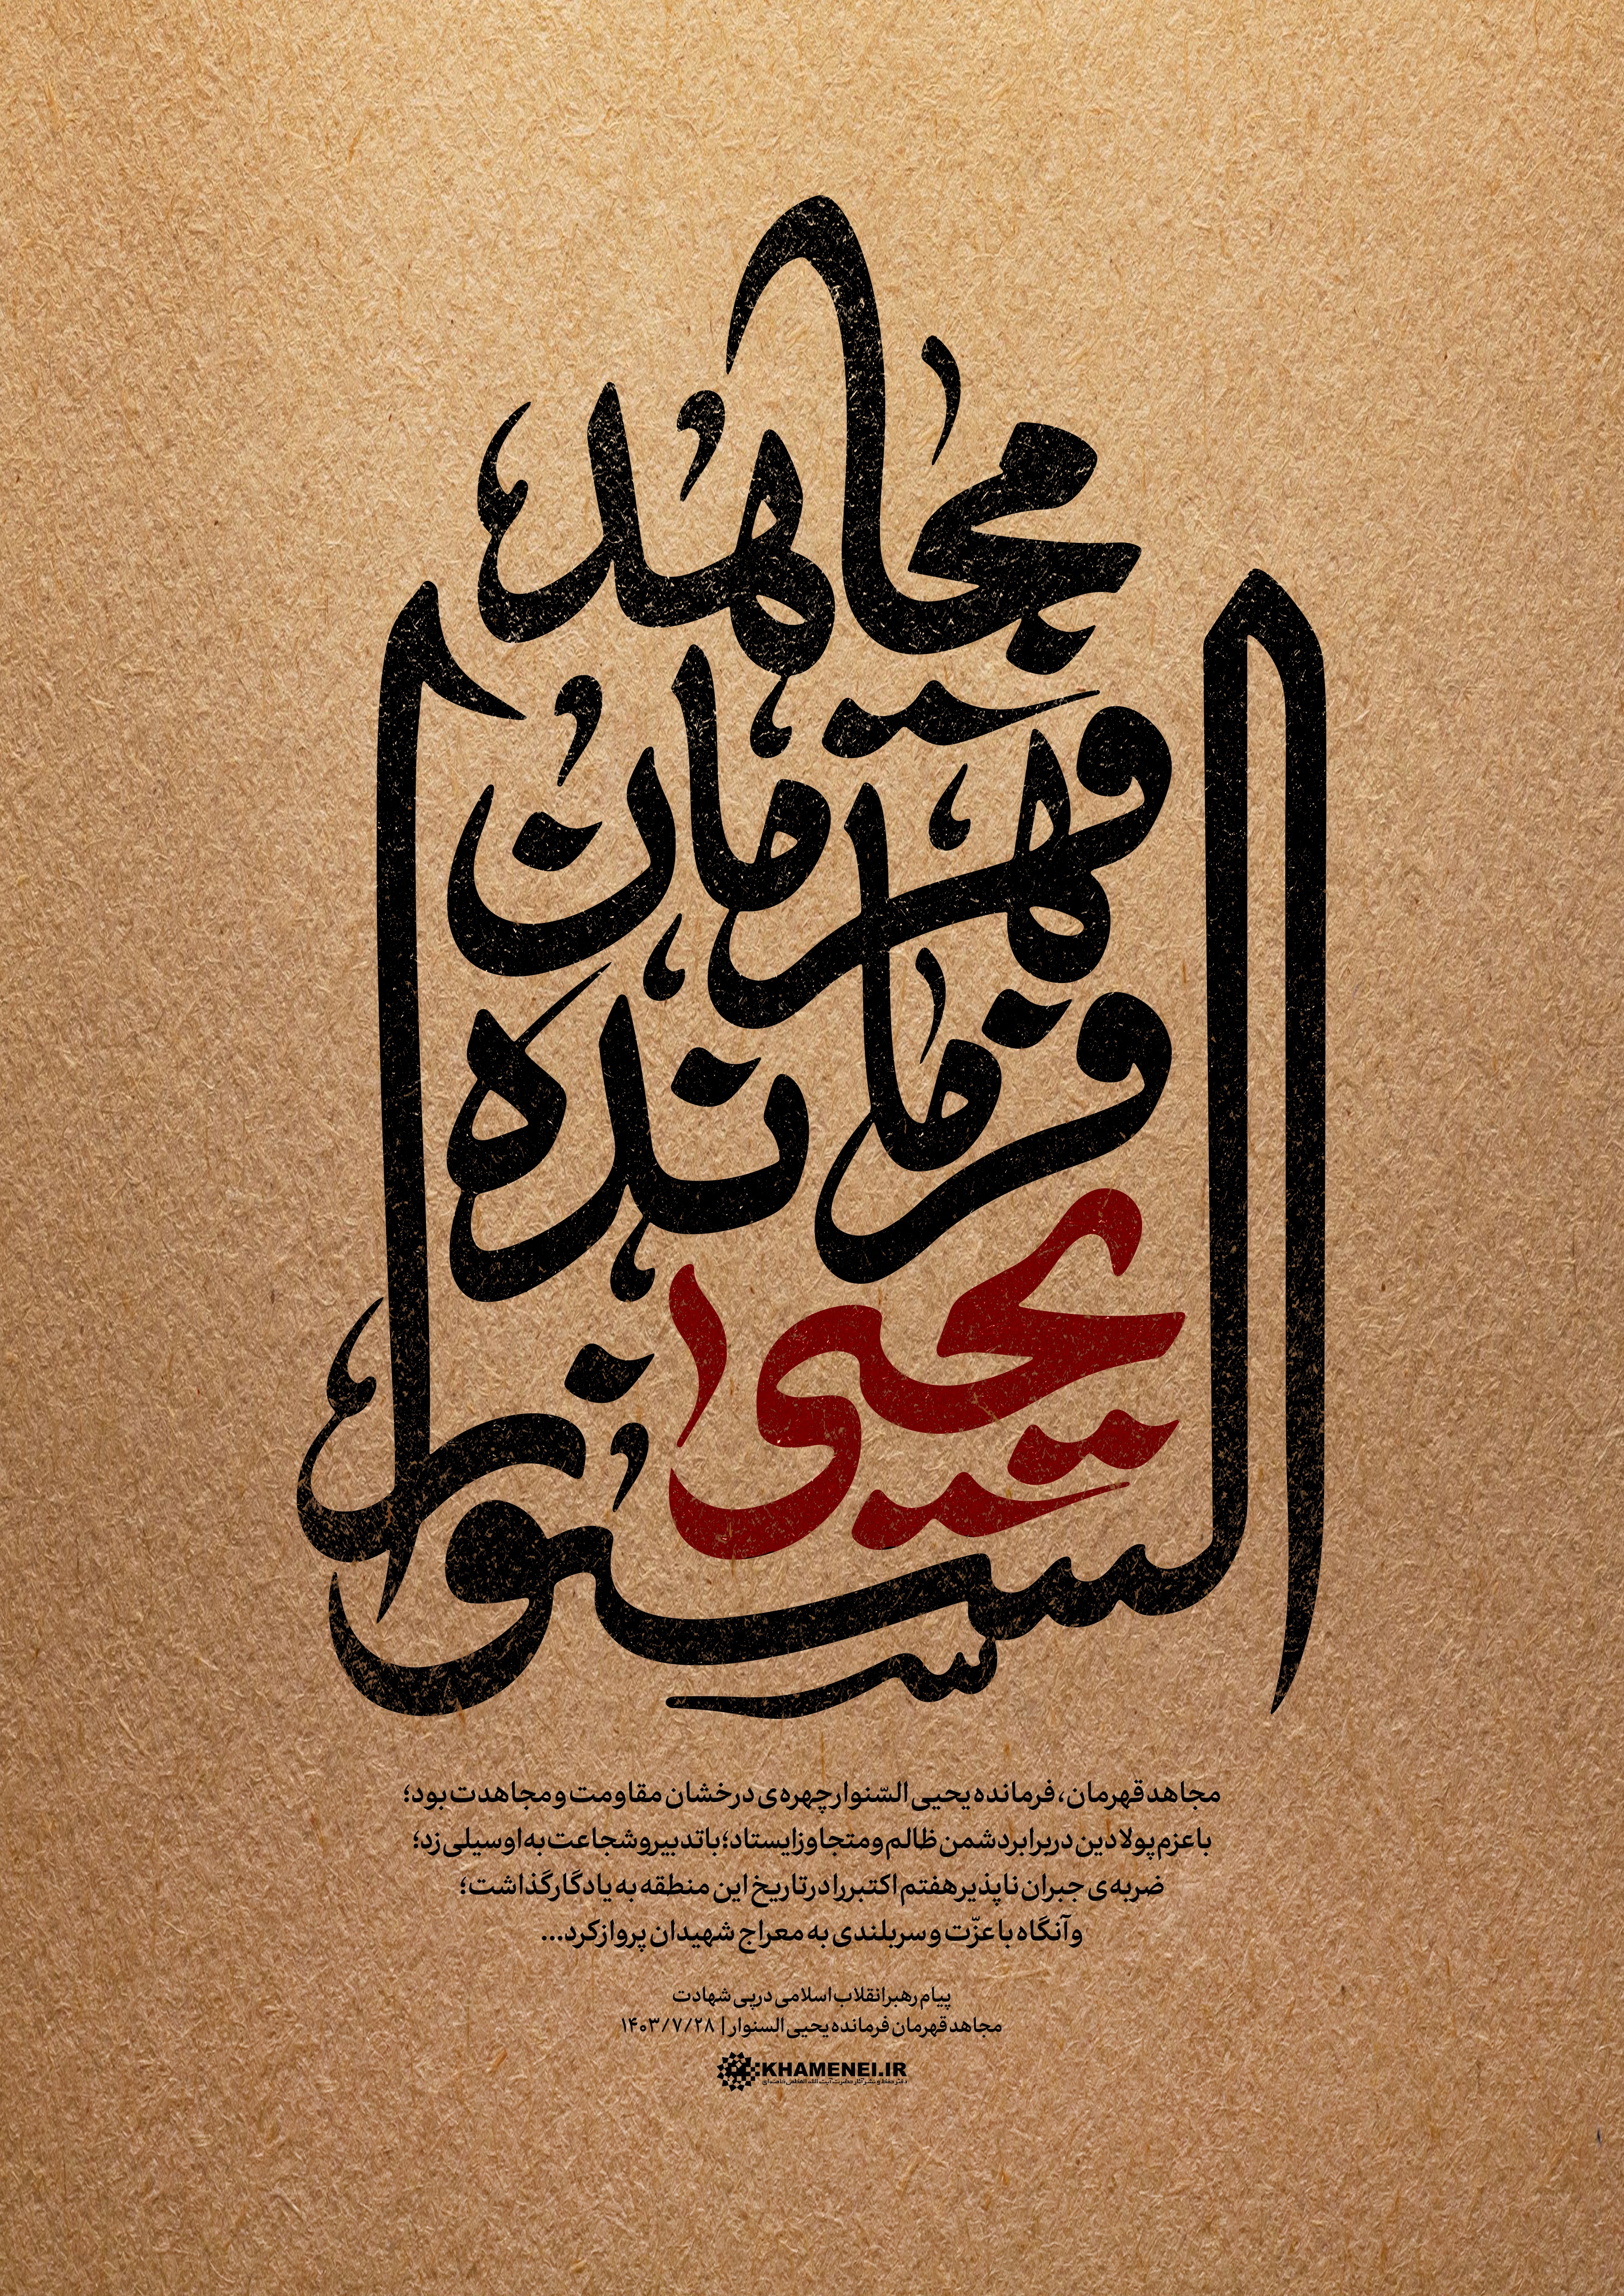 مجاهد
قهرمان
فرمانده
یحیی
السنوار
مجاهد قهرمان، فرمانده یحیی السّنوار چهره‌ی درخشان مقاومت و مجاهدت بود؛
با عزم پولادین در برابر دشمن ظالم و متجاوز ایستاد؛ با تدبیر و شجاعت به او سیلی زد؛
ضربه‌ی جبران ناپذیر هفتم اکتبر را در تاریخ این منطقه به یادگار گذاشت؛
و آنگاه با عزّت و سربلندی به معراج شهیدان پرواز کرد...
پیام رهبر انقلاب اسلامی در پی شهادت
مجاهد قهرمان فرمانده یحیی السنوار | ۱۴۰۳/۷/۲۸
KHAMENEI.IR
دفتر حفظ و نشر آثار حضرت آیت‌الله العظمی خامنه‌ای